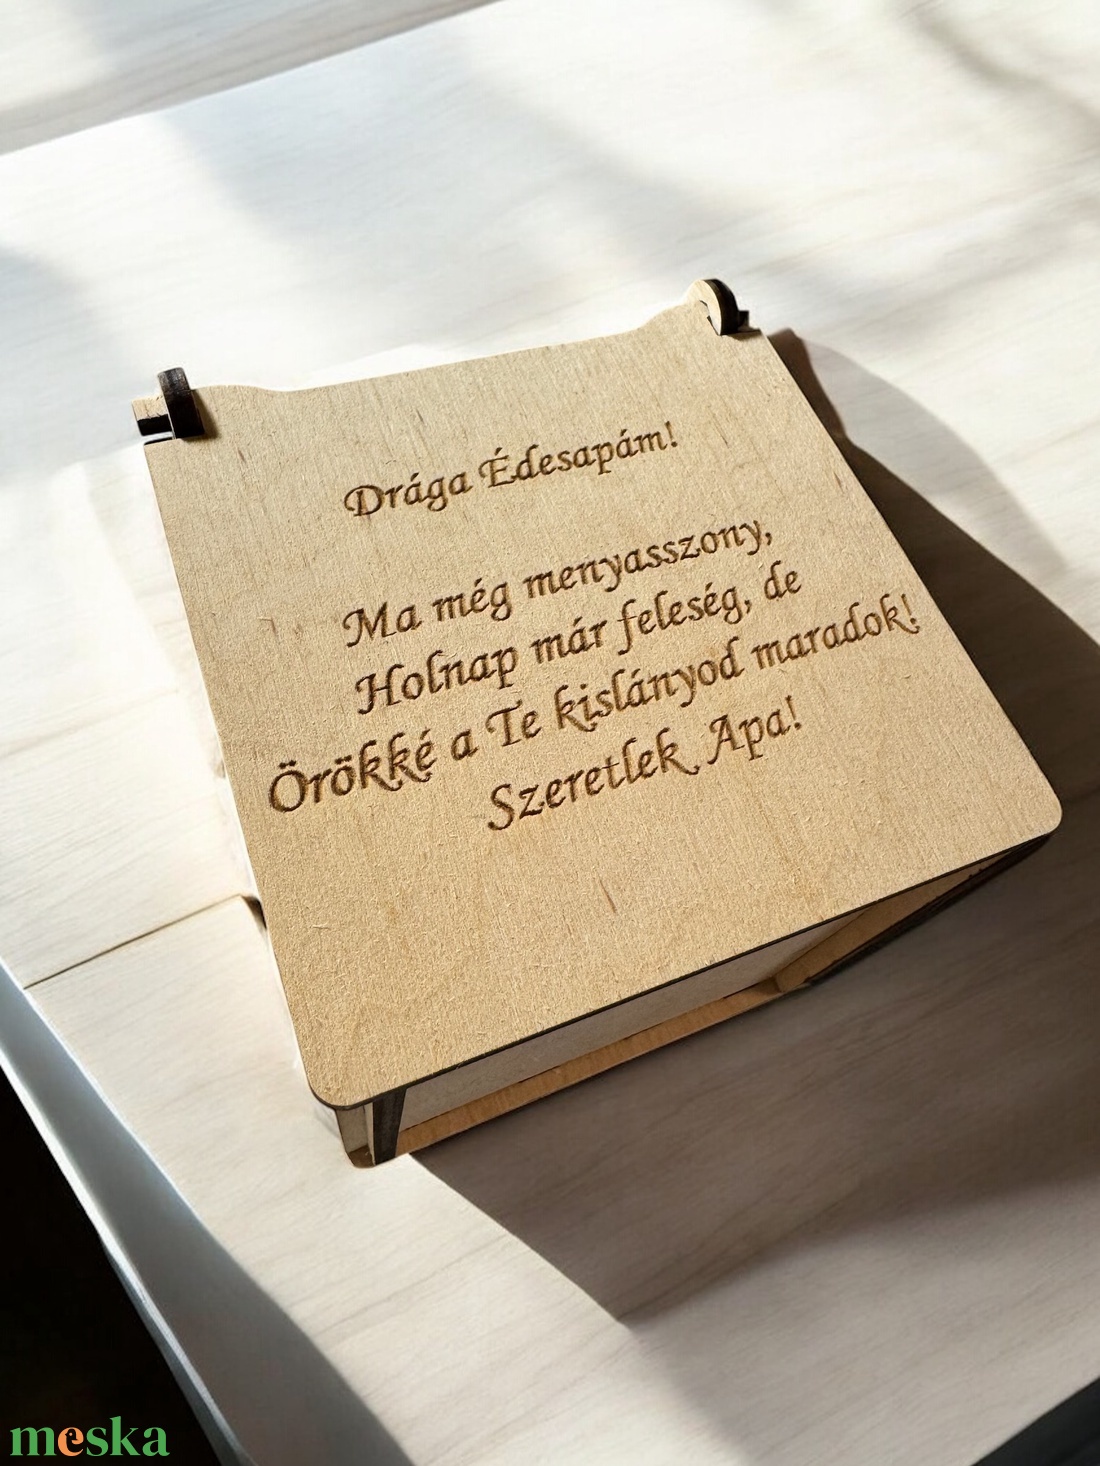 Drága Édesapám!
Ma még menyasszony,
Holnap már feleség, de
Örökké a Te kislányod maradok!
Szeretlek Apa!
meska